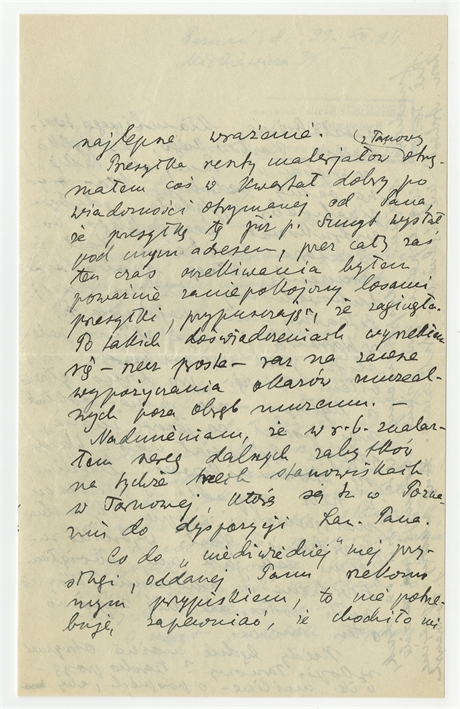 najlepsze wrażenie. (z Tarnowy
Przesyłkę reszty materjałów otrzy-
małem coś w kwartał dobry po
wiadomości otrzymanej od Pana,
że przesyłkę tę już p. Smugt wysłał
pod mym adresem, przez cały zaś
ten czas oczekiwania byłem
poważnie zaniepokojony losami
przesyłki, przypuszczając, że zaginęła.
Po takich doświadczeniach wyrzekłem
się – rzecz prosta – raz na zawsze
wypożyczania okazów muzeal-
nych poza obręb muzeum. –
Nadmieniam, że w r. b. znalaz-
łem szereg dalszych zabytków
na tychże trzech stanowiskach
w Tarnowej, które są tu w Pozna-
niu do dyspozycji Szan. Pana.
Co do „niedźwiedziej" mej przy-
sługi, oddanej Panu rzekomo
mym przypiskiem, to nie potrze-
buję zapewniać, że chodziło mi